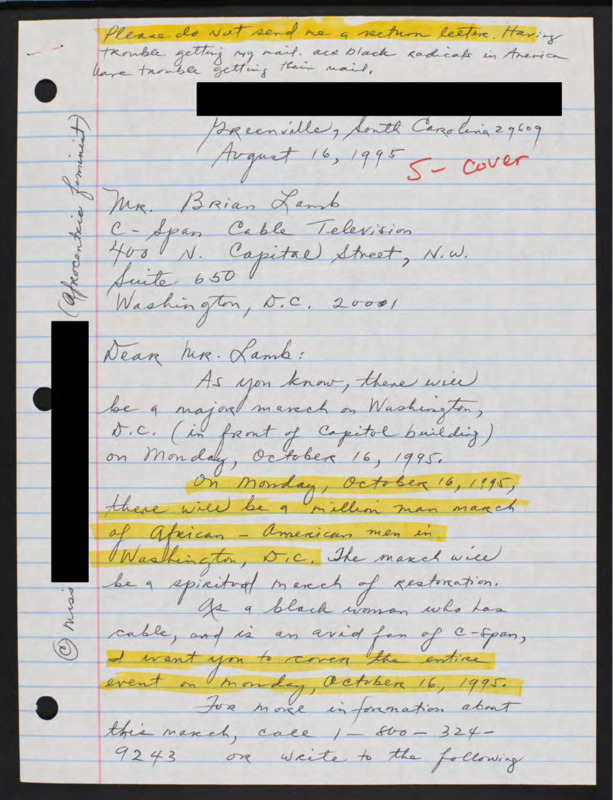 Please do not send me a return letter. Having
trouble getting my mail. all black radicals in America
have trouble getting their mail.
Greenville, South Carolina 29609
August 16, 1995
5- cover
Mr. Brian Lamb
C-Span Cable Television
400 N. Capital Street, N.W.
Suite 650
Washington, D.C. 20001
Dear Mr. Lamb:
As you know, there will
be a major march on Washington,
D.C. (in front of Capitol building)
on Monday, October 16, 1995.
On Monday, October 16, 1995,
there will be a million man march
of African-American men in
Washington, D.C. The march will
be a spiritual march of restoration.
As a black woman who has
cable, and is an avid fan of C-Span,
I want you to cover the entire
event on Monday, October 16, 1995.
For more information about
this march, call 1-800-324-
9243 or write to the following
© miss
(afrocentric feminist)